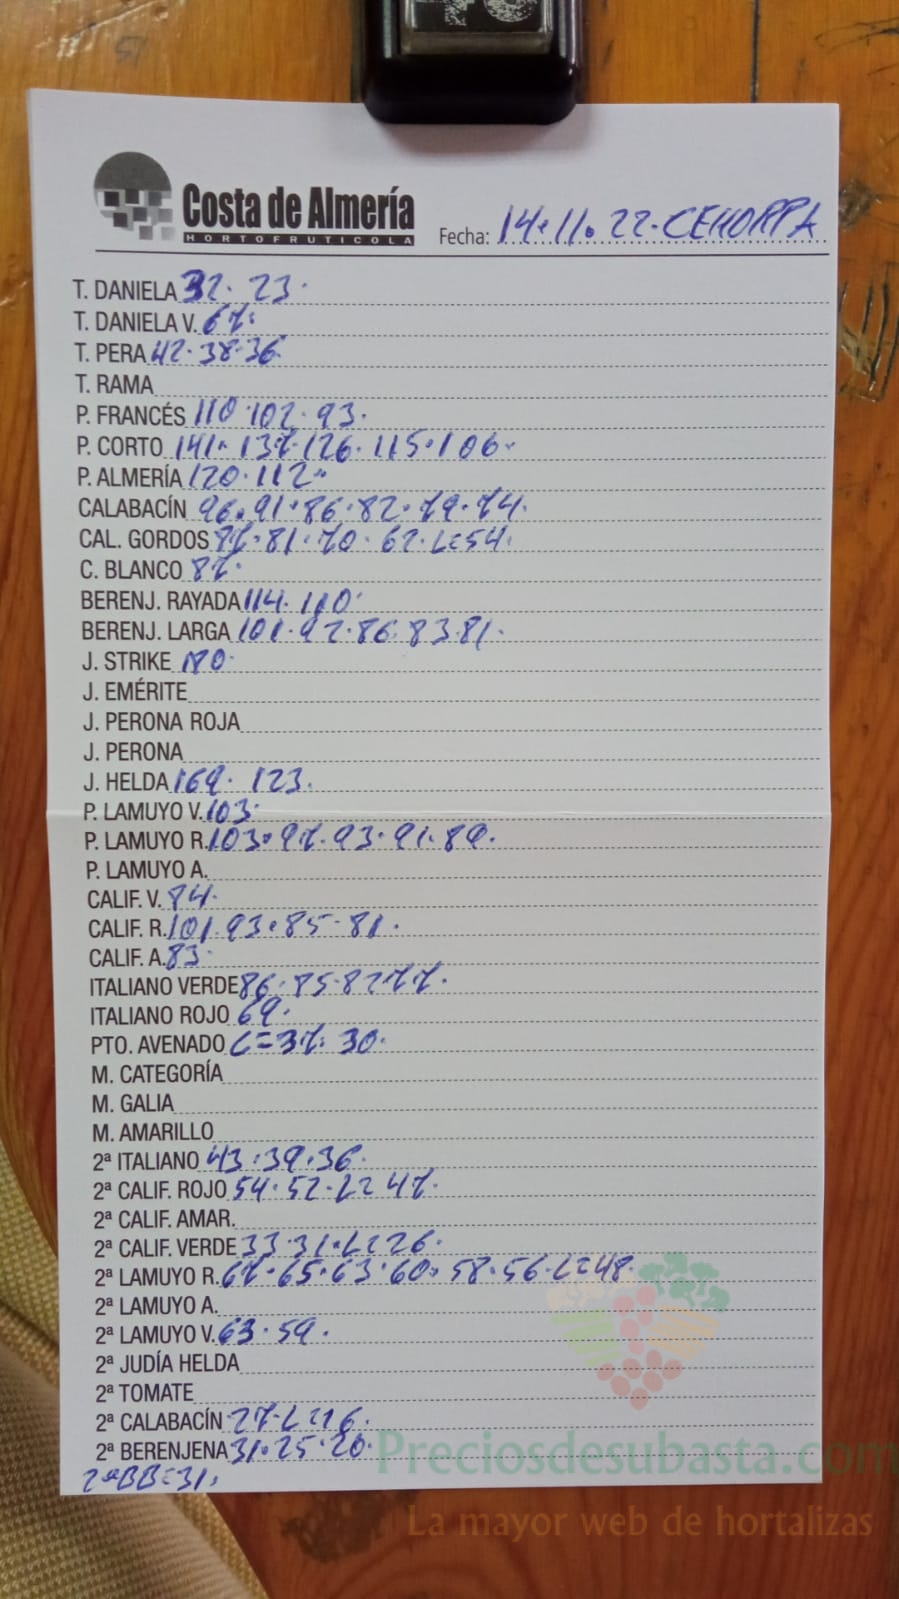 Costa de Almería
HORTOFRUTICOLA
Fecha: 14.11.22.CEHORPA
T. DANIELA 32. 23.
T. DANIELA V. 67.
T. PERA 42.38.36
T. RAMA
P. FRANCÉS 110 102. 93.
P. CORTO 141.137.126.115.106.
P. ALMERÍA 120.112.
CALABACÍN 96.91.86.82.79.74.
CAL. GORDOS 87.81.70.62.L=54.
C. BLANCO 87.
BERENJ. RAYADA 114. 110.
BERENJ. LARGA 101.92.86.83.81.
J. STRIKE 180.
J. EMÉRITE
J. PERONA ROJA
J. PERONA
J. HELDA 169. 123.
P. LAMUYO V. 103.
P. LAMUYO R. 103.97.93.91.89.
P. LAMUYO A.
CALIF. V. 84.
CALIF. R. 101.93.85.81.
CALIF. A. 83.
ITALIANO VERDE 86.85.82.77.
ITALIANO ROJO 69.
PTO. AVENADO L=37. 30.
M. CATEGORÍA
M. GALIA
M. AMARILLO
2ª ITALIANO 43.39.36.
2ª CALIF. ROJO 54.52.L=47.
2ª CALIF. AMAR.
2ª CALIF. VERDE 33.31.L=26.
2ª LAMUYO R. 67.65.63.60.58.56.L=48.
2ª LAMUYO A.
2ª LAMUYO V. 63.59.
2ª JUDÍA HELDA
2ª TOMATE
2ª CALABACÍN 27.L=16.
2ª BERENJENA 31.25.20.
2ªBB=31.
Preciosdesubasta.com
La mayor web de hortalizas